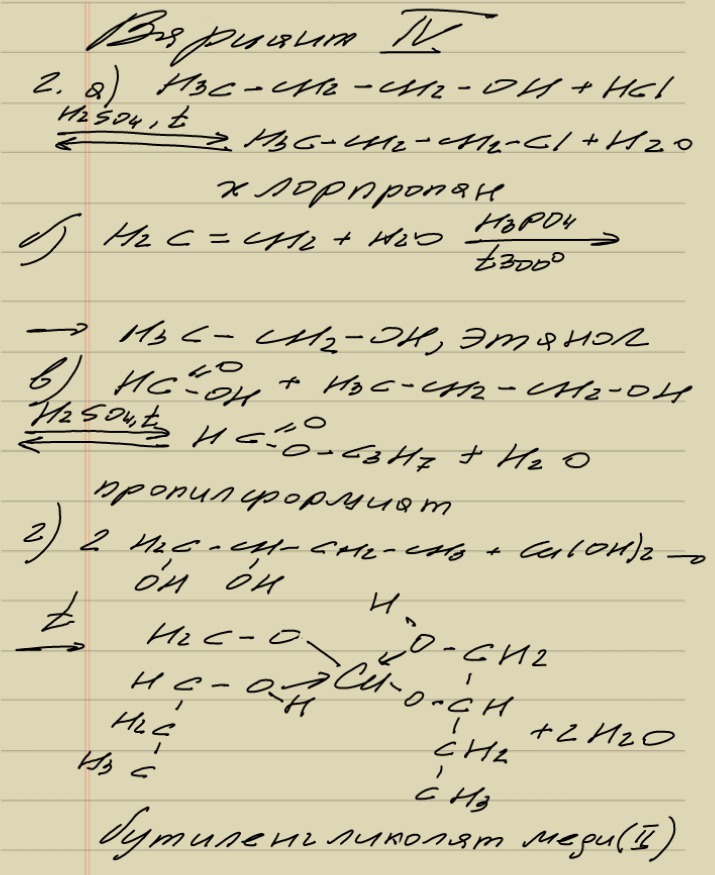 Вариант IV
2. а) H3C - CH2 - CH2 - OH + HCl
H2SO4, t
⇄ H3C - CH2 - CH2 - Cl + H2O
хлорпропан
б) H2C = CH2 + H2O H3PO4 → t300°
→ H3C - CH2 - OH, этанол
в) HC =O -OH + H3C - CH2 - CH2 - OH
H2SO4, t
⇄ HC =O -O - C3H7 + H2O
пропилформиат
г) 2 H2C - CH - CH2 - CH3 + Cu(OH)2 →
OH OH
H
t → H2C - O O - CH2
HC - O → Cu - O - CH
H
H2C CH2 + 2H2O
H3C CH3
бутиленгликолят меди(II)